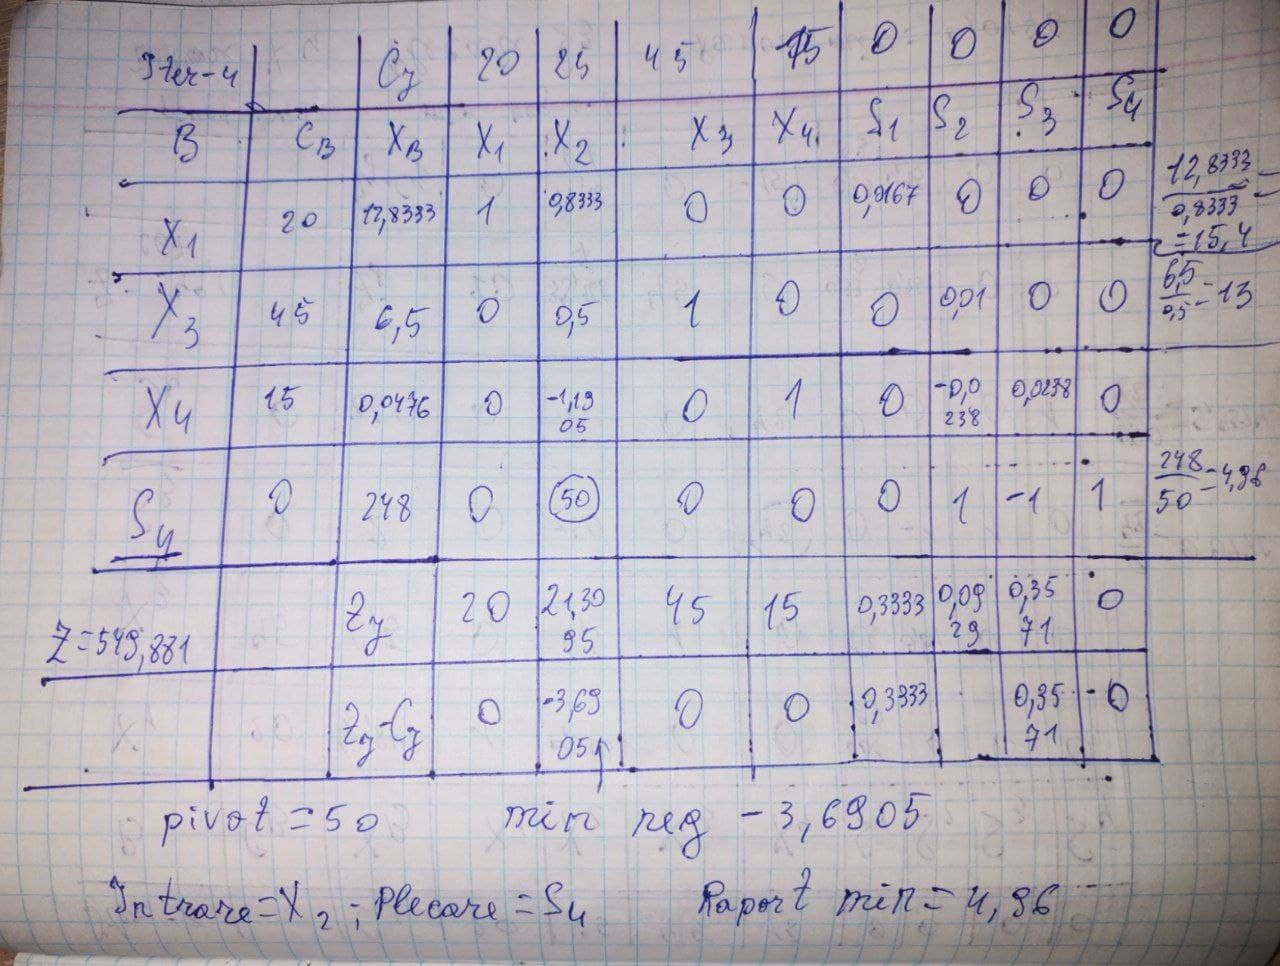 Iter-4 Cy 20 25 45 15 0 0 0 0
B CB XB X1 X2 X3 X4 S1 S2 S3 S4
X1 20 12,8333 1 0,8333 0 0 0,0167 0 0 0 12,8333/0,8333 = =15,4
X3 45 6,5 0 0,5 1 0 0 0,01 0 0 6,5/0,5=13
X4 15 0,0476 0 -1,1905 0 1 0 -0,0238 0,0238 0
S4 0 248 0 50 0 0 0 1 -1 1 248/50=4,96
Z=549,881 Zy 20 21,3095 45 15 0,3333 0,0929 0,3571 0
Zy-Cy 0 -3,6905 0 0 0,3333 0,3571 0
pivot = 50 min neg -3,6905
Intrare=X2; Plecare=S4 Raport min=4,96